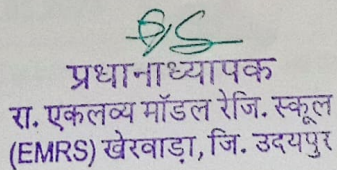 प्रधानाध्यापक
रा. एकलव्य मॉडल रेजि. स्कूल
(EMRS) खेरवाड़ा, जि. उदयपुर